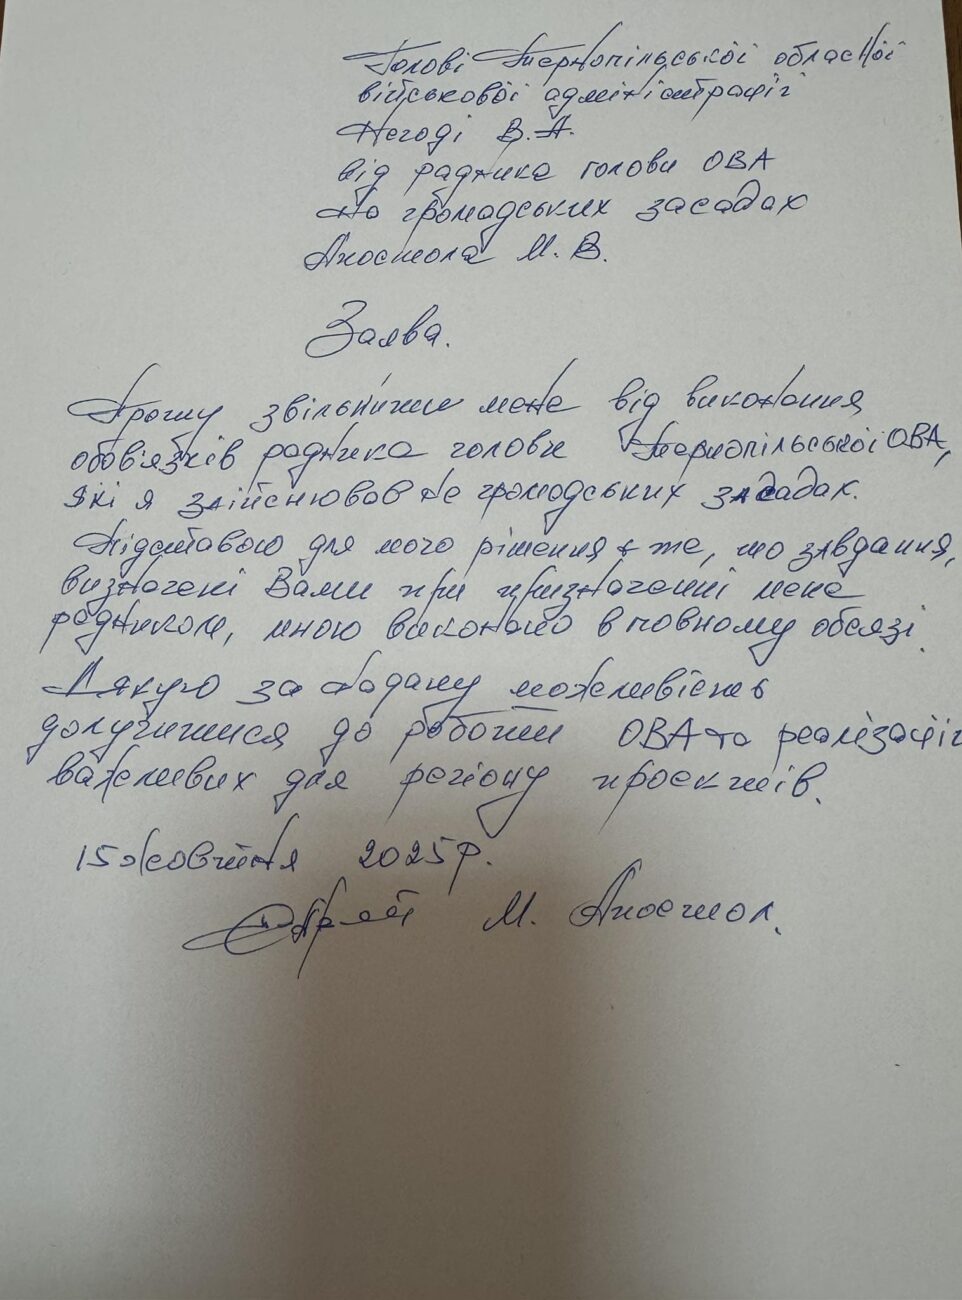 Голові Тернопільської обласної
військової адміністрації
Негоді В.А.
від радника голови ОВА
на громадських засадах
Апостола М.В.
Заява.
Прошу звільнити мене від виконання
обов'язків радника голови Тернопільської ОВА,
які я здійснював на громадських засадах.
Підставою для мого рішення є те, що завдання,
визначені Вами при призначенні мене
радником, мною виконано в повному обсязі.
Дякую за надану можливість
долучитися до роботи ОВА та реалізації
важливих для регіону проектів.
15 жовтня 2025р.
М. Апостол.